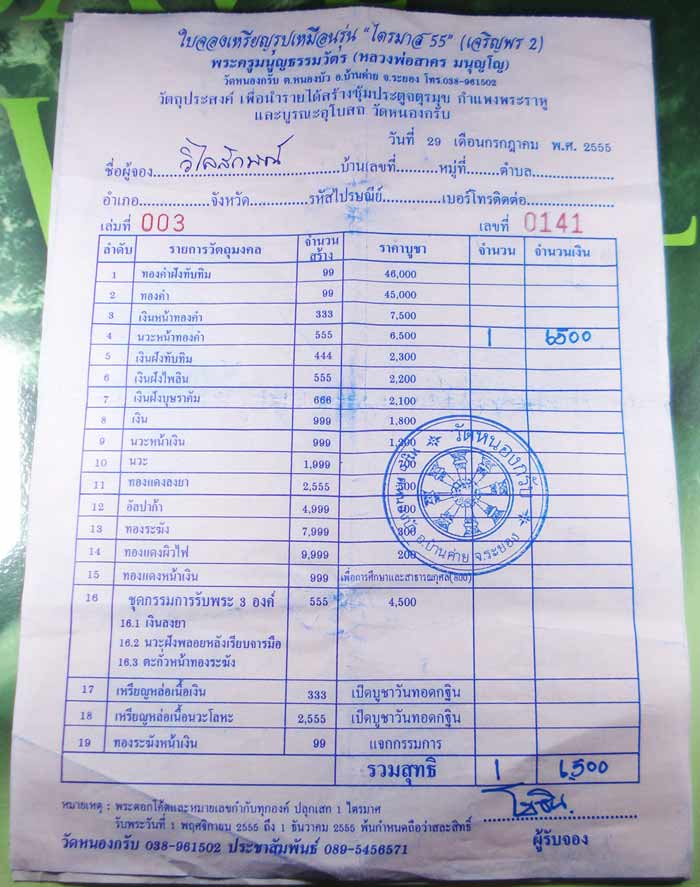 ใบจองเหรียญรูปเหมือนรุ่น "ไตรมาส 55" (เจริญพร 2)
พระครูมนูญธรรมวัตร (หลวงพ่อสาคร มนุญโญ)
วัดหนองกรับ ต.หนองบัว อ.บ้านค่าย จ.ระยอง โทร.038-961502
วัตถุประสงค์ เพื่อนำรายได้สร้างซุ้มประตูจตุรมุข กำแพงพระราหู
และบูรณะอุโบสถ วัดหนองกรับ
วันที่ 29 เดือนกรกฎาคม พ.ศ. 2555
ชื่อผู้จอง วิไลลักษณ์ บ้านเลขที่ หมู่ที่ ตำบล
อำเภอ จังหวัด รหัสไปรษณีย์ เบอร์โทรติดต่อ
เล่มที่ 003 เลขที่ 0141
ลำดับ รายการวัตถุมงคล จำนวนสร้าง ราคาบูชา จำนวน จำนวนเงิน
1 ทองคำฝังทับทิม 99 46,000
2 ทองคำ 99 45,000
3 เงินหน้าทองคำ 333 7,500
4 นวะหน้าทองคำ 555 6,500 1 6500
5 เงินฝังทับทิม 444 2,300
6 เงินฝังไพลิน 555 2,200
7 เงินฝังบุษราคัม 666 2,100
8 เงิน 999 1,800
9 นวะหน้าเงิน 999 1,200
10 นวะ 1,999
11 ทองแดงลงยา 2,555
12 อัลปาก้า 4,999
13 ทองระฆัง 7,999 300
14 ทองแดงผิวไฟ 9,999 200
15 ทองแดงหน้าเงิน 999 เพื่อการศึกษาและสาธารณกุศล(800)
16 ชุดกรรมการรับพระ 3 องค์ 555 4,500
16.1 เงินลงยา
16.2 นวะฝังพลอยหลังเรียบจารมือ
16.3 ตะกั่วหน้าทองระฆัง
17 เหรียญหล่อเนื้อเงิน 333 เปิดบูชาวันทอดกฐิน
18 เหรียญหล่อเนื้อนวะโลหะ 2,555 เปิดบูชาวันทอดกฐิน
19 ทองระฆังหน้าเงิน 99 แจกกรรมการ
รวมสุทธิ 1 6,500
วัดหนองกรับ
อ.บ้านค่าย จ.ระยอง
หมายเหตุ : พระตอกโค๊ตและหมายเลขกำกับทุกองค์ ปลุกเสก 1 ไตรมาศ
รับพระวันที่ 1 พฤศจิกายน 2555 ถึง 1 ธันวาคม 2555 พ้นกำหนดถือว่าสละสิทธิ์
ผู้รับจอง
วัดหนองกรับ 038-961502 ประชาสัมพันธ์ 089-5456571